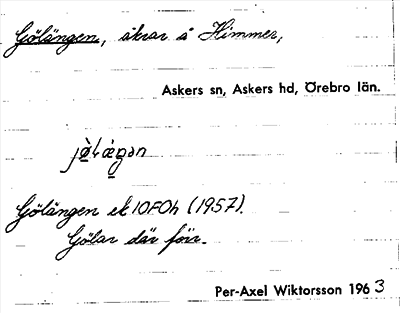 Gölängen, åkrar å Himmer,
Askers sn, Askers hd, Örebro län.
Gölängen ek 10F0h (1957).
Gölar där förr.
Per-Axel Wiktorsson 1963